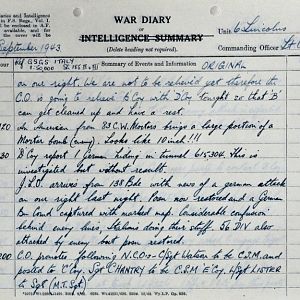 WAR DIARY
or
INTELLIGENCE SUMMARY
(Delete heading not required).
Unit 6 Lincolns
Commanding Officer Lt. Col.
September 1943
Ref GSGS ITALY
1:50,000
Summary of Events and Information
ORIGINAL
on our right. We are not to be relieved yet therefore the
C.O. is going to relieve B Coy with D Coy tonight so that 'B'
can get cleaned up and have a rest.
An American from 83 C.W. Mortars brings a large portion of a
Mortar bomb (enemy). Looks like 10 inch!!!
B Coy report 1 German hiding in tunnel 615304. This is
investigated but without result.
I.L.O. arrives from 138 Bde with news of a german attack
on our right last night. Posn now restored and a German
Bn Comd captured with marked map. Considerable confusion
behind enemy lines, Italians doing their stuff. 56 DIV also
attacked by enemy but posn restored.
C.O. promotes following N.C.Os - C/Sgt Watson to be C.S.M. and
posted to 'C' Coy. Sgt CHANTRY to be C.S.M E Coy. L/Sgt LISTER
to Sgt (M.T. Sgt)